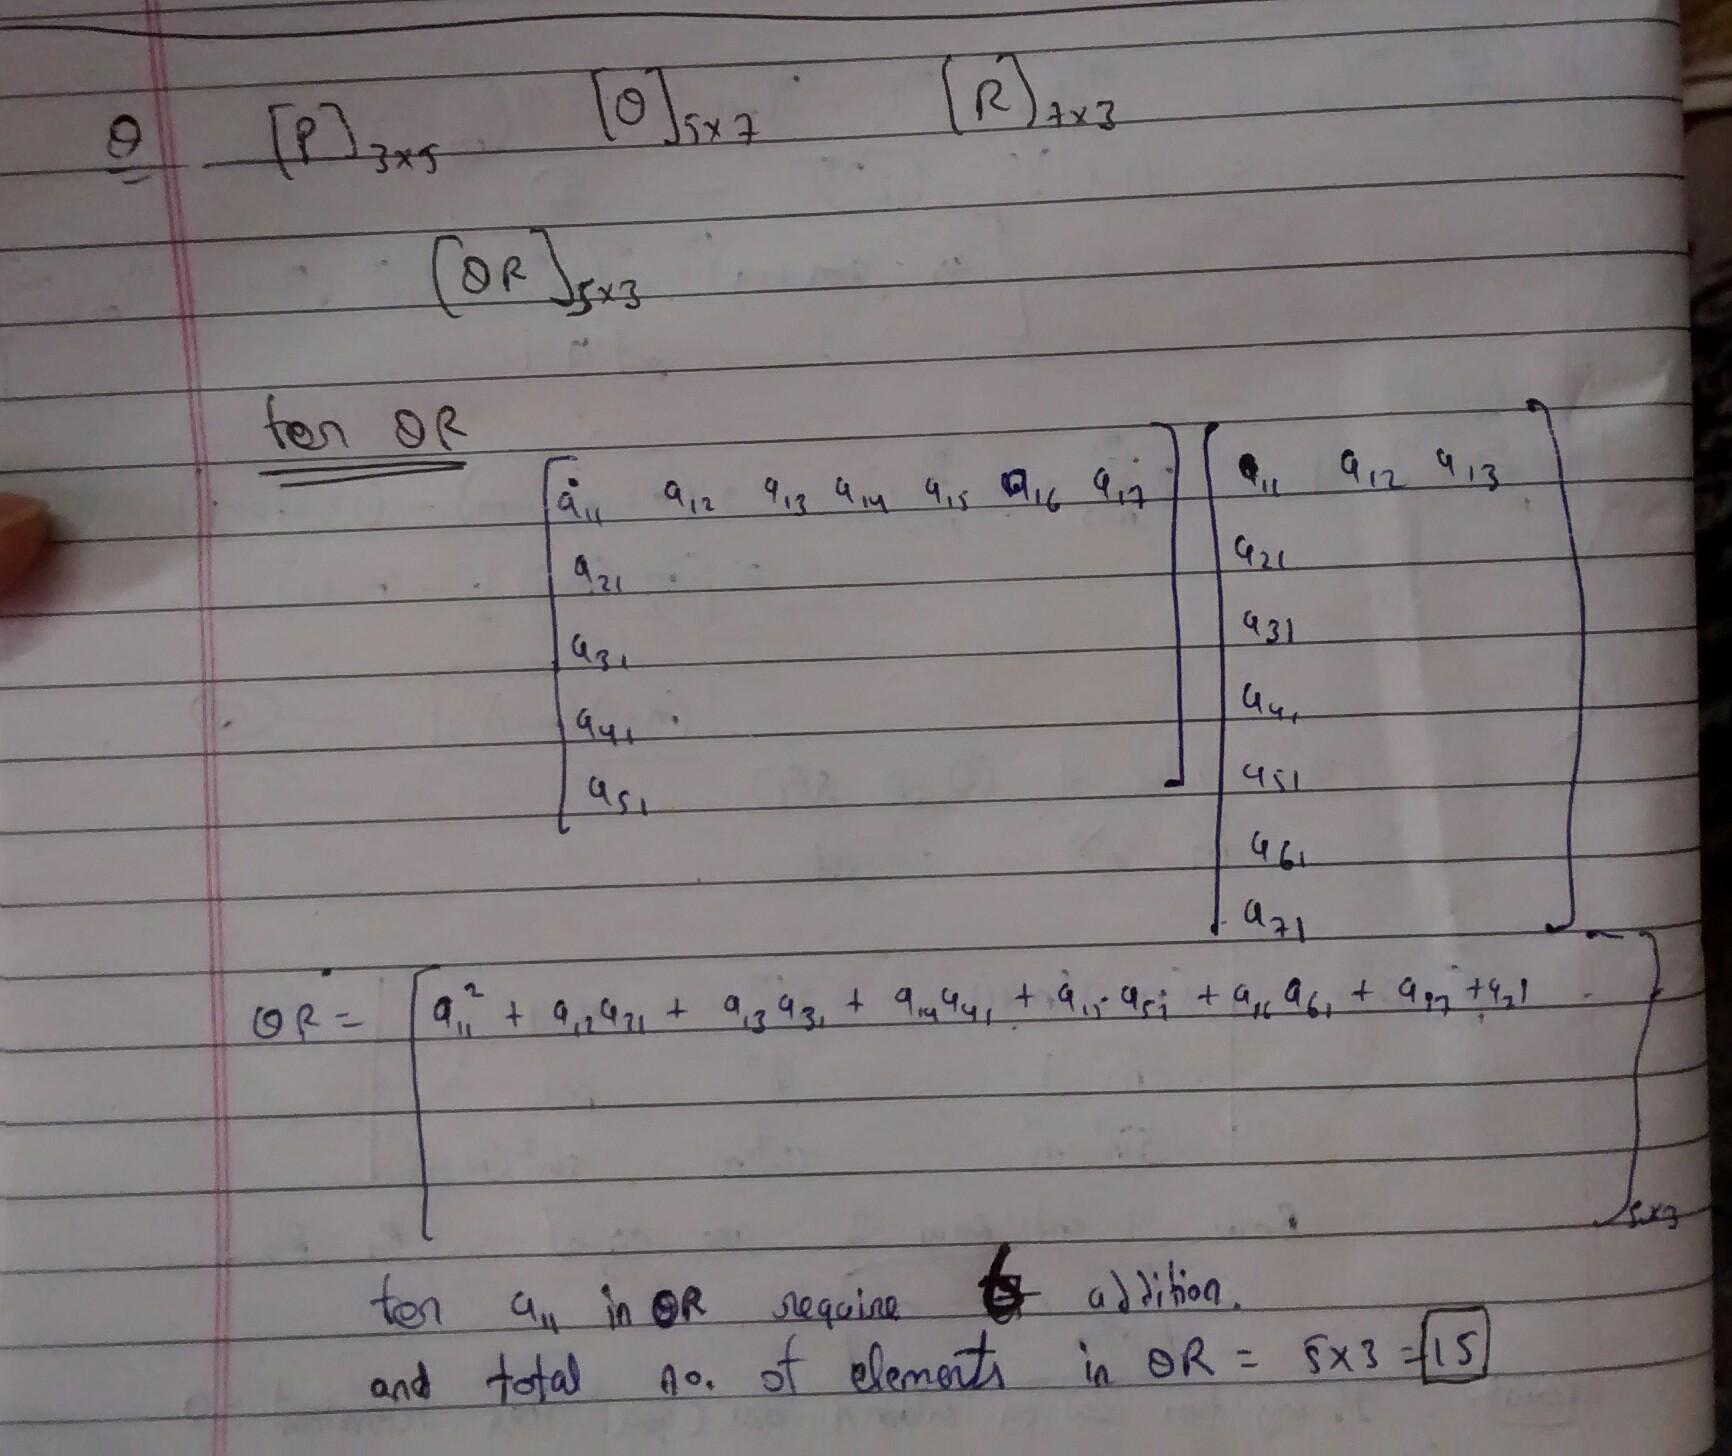 Q [P]3x5 [Q]5x7 [R]7x3
[QR]5x3
for QR
a11 a12 a13 a14 a15 a16 a17 a11 a12 a13
a21 a21
a31 a31
a41 a41
a51 a51
a61
a71
QR = [a11² + a12a21 + a13a31 + a14a41 + a15·a51 + a16a61 + a17+a71]5x3
for a11 in QR require 6 addition.
and total no. of elements in QR = 5x3 = 15